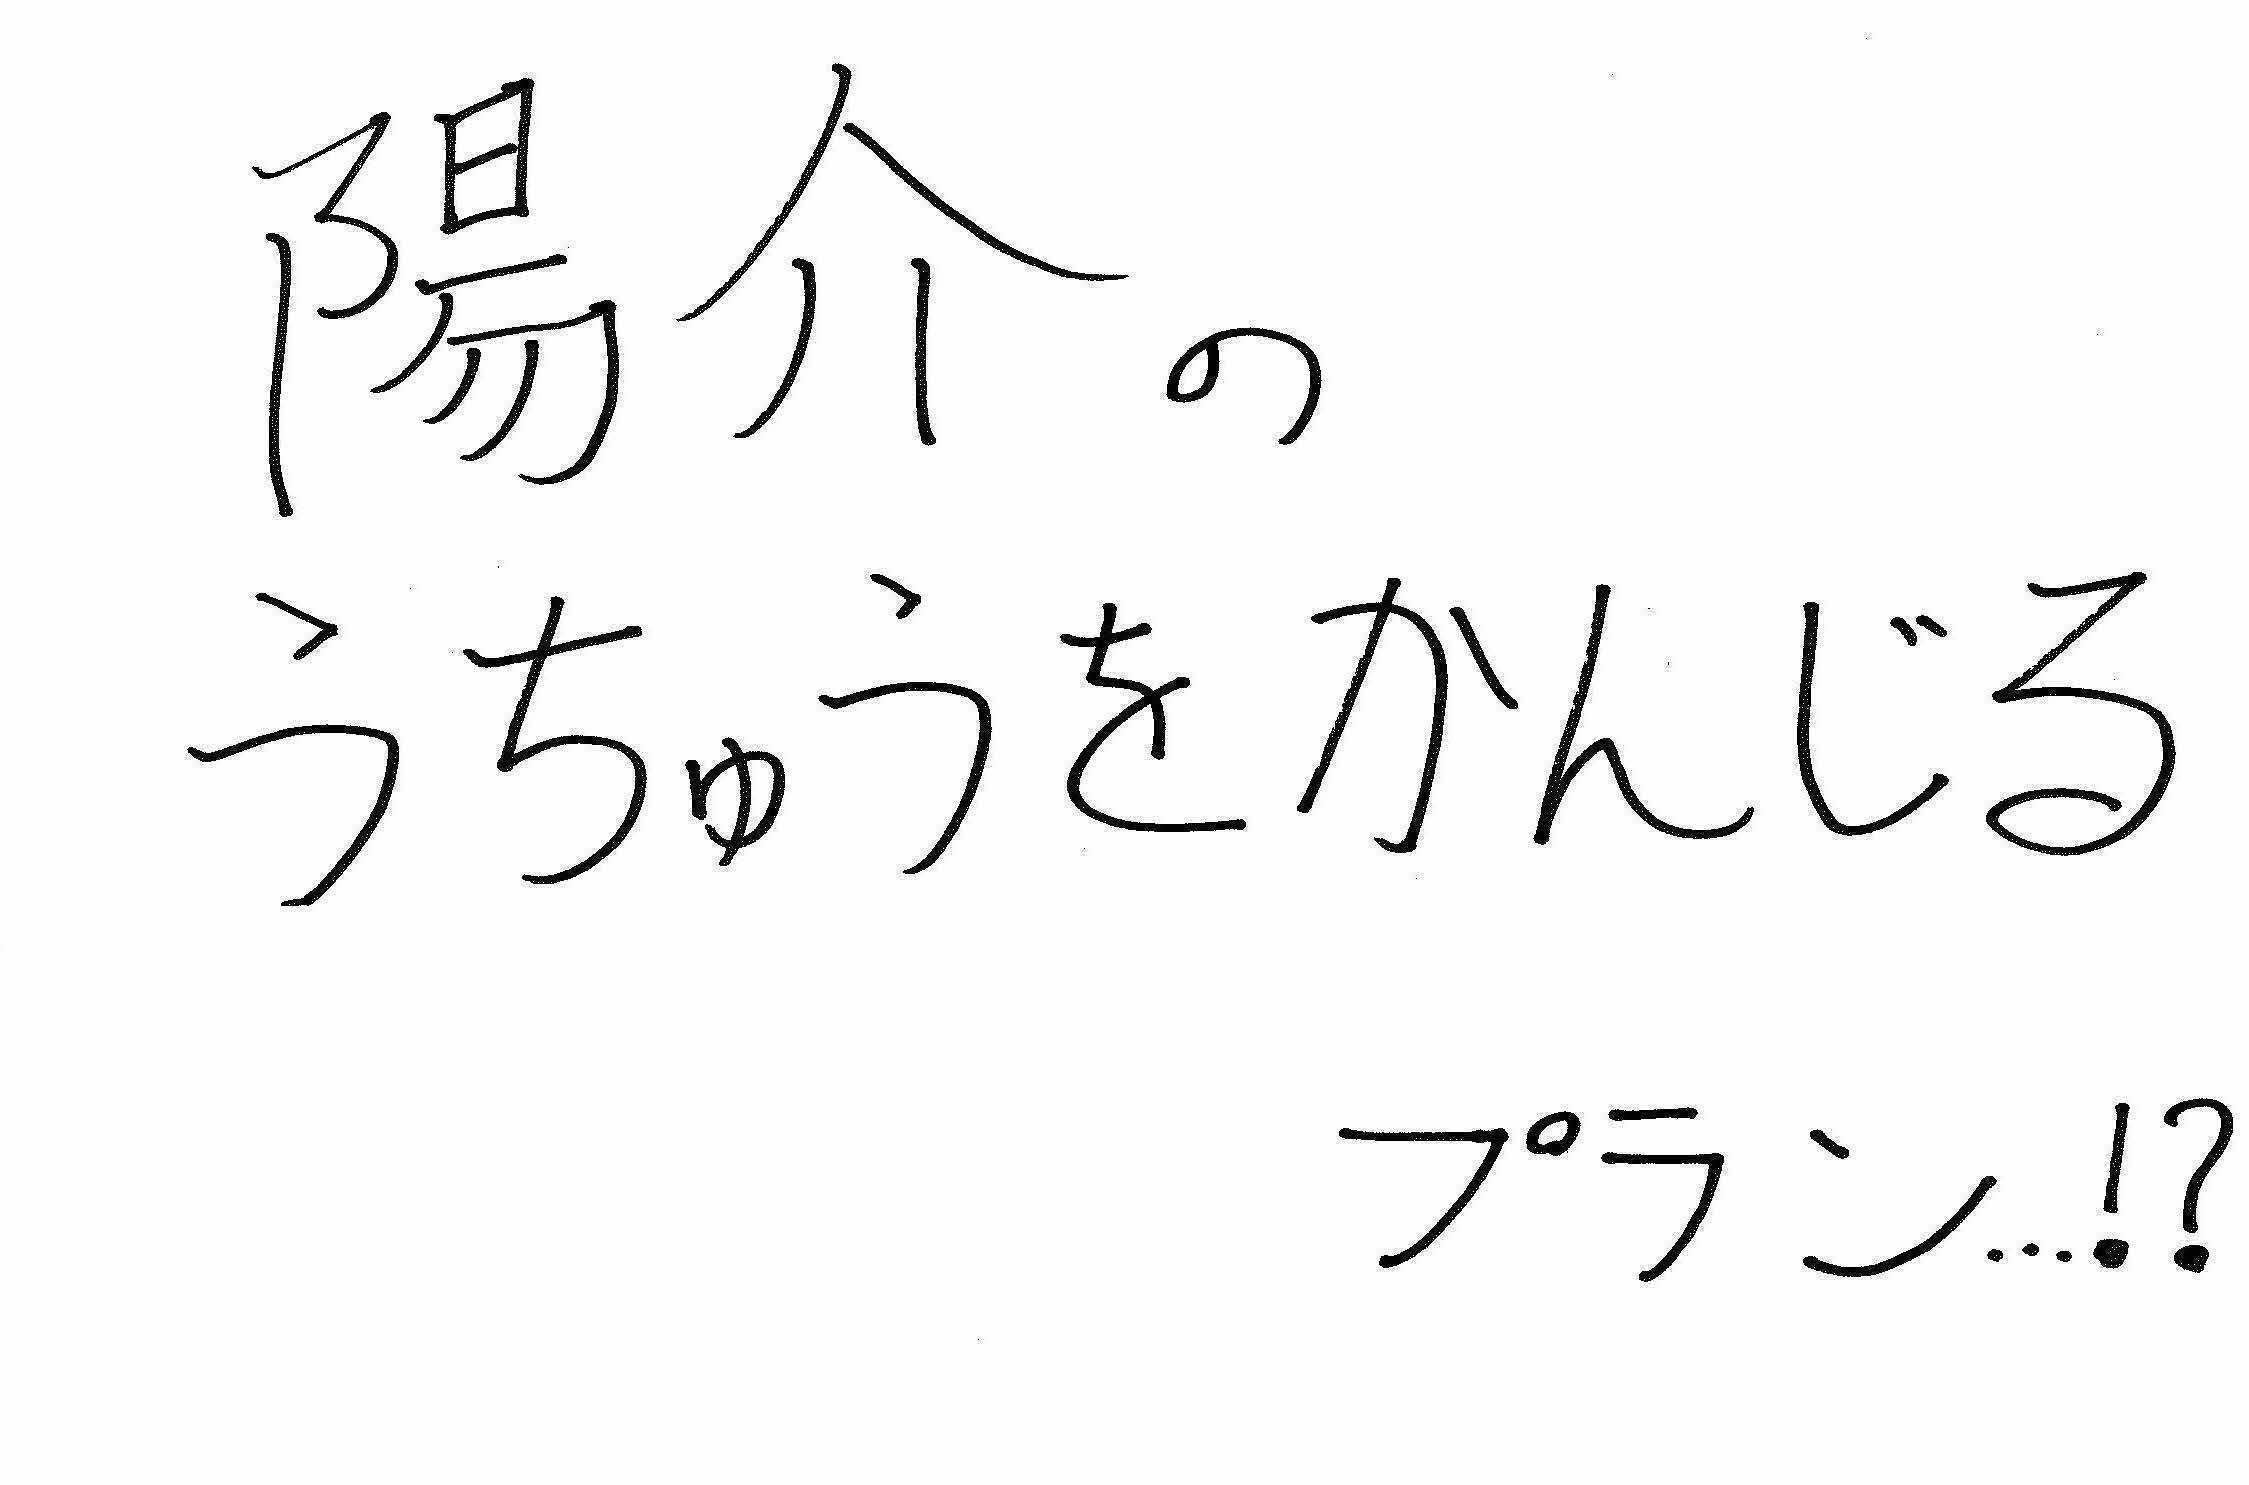 陽介の
うちゅうをかんじる
プラン...!?